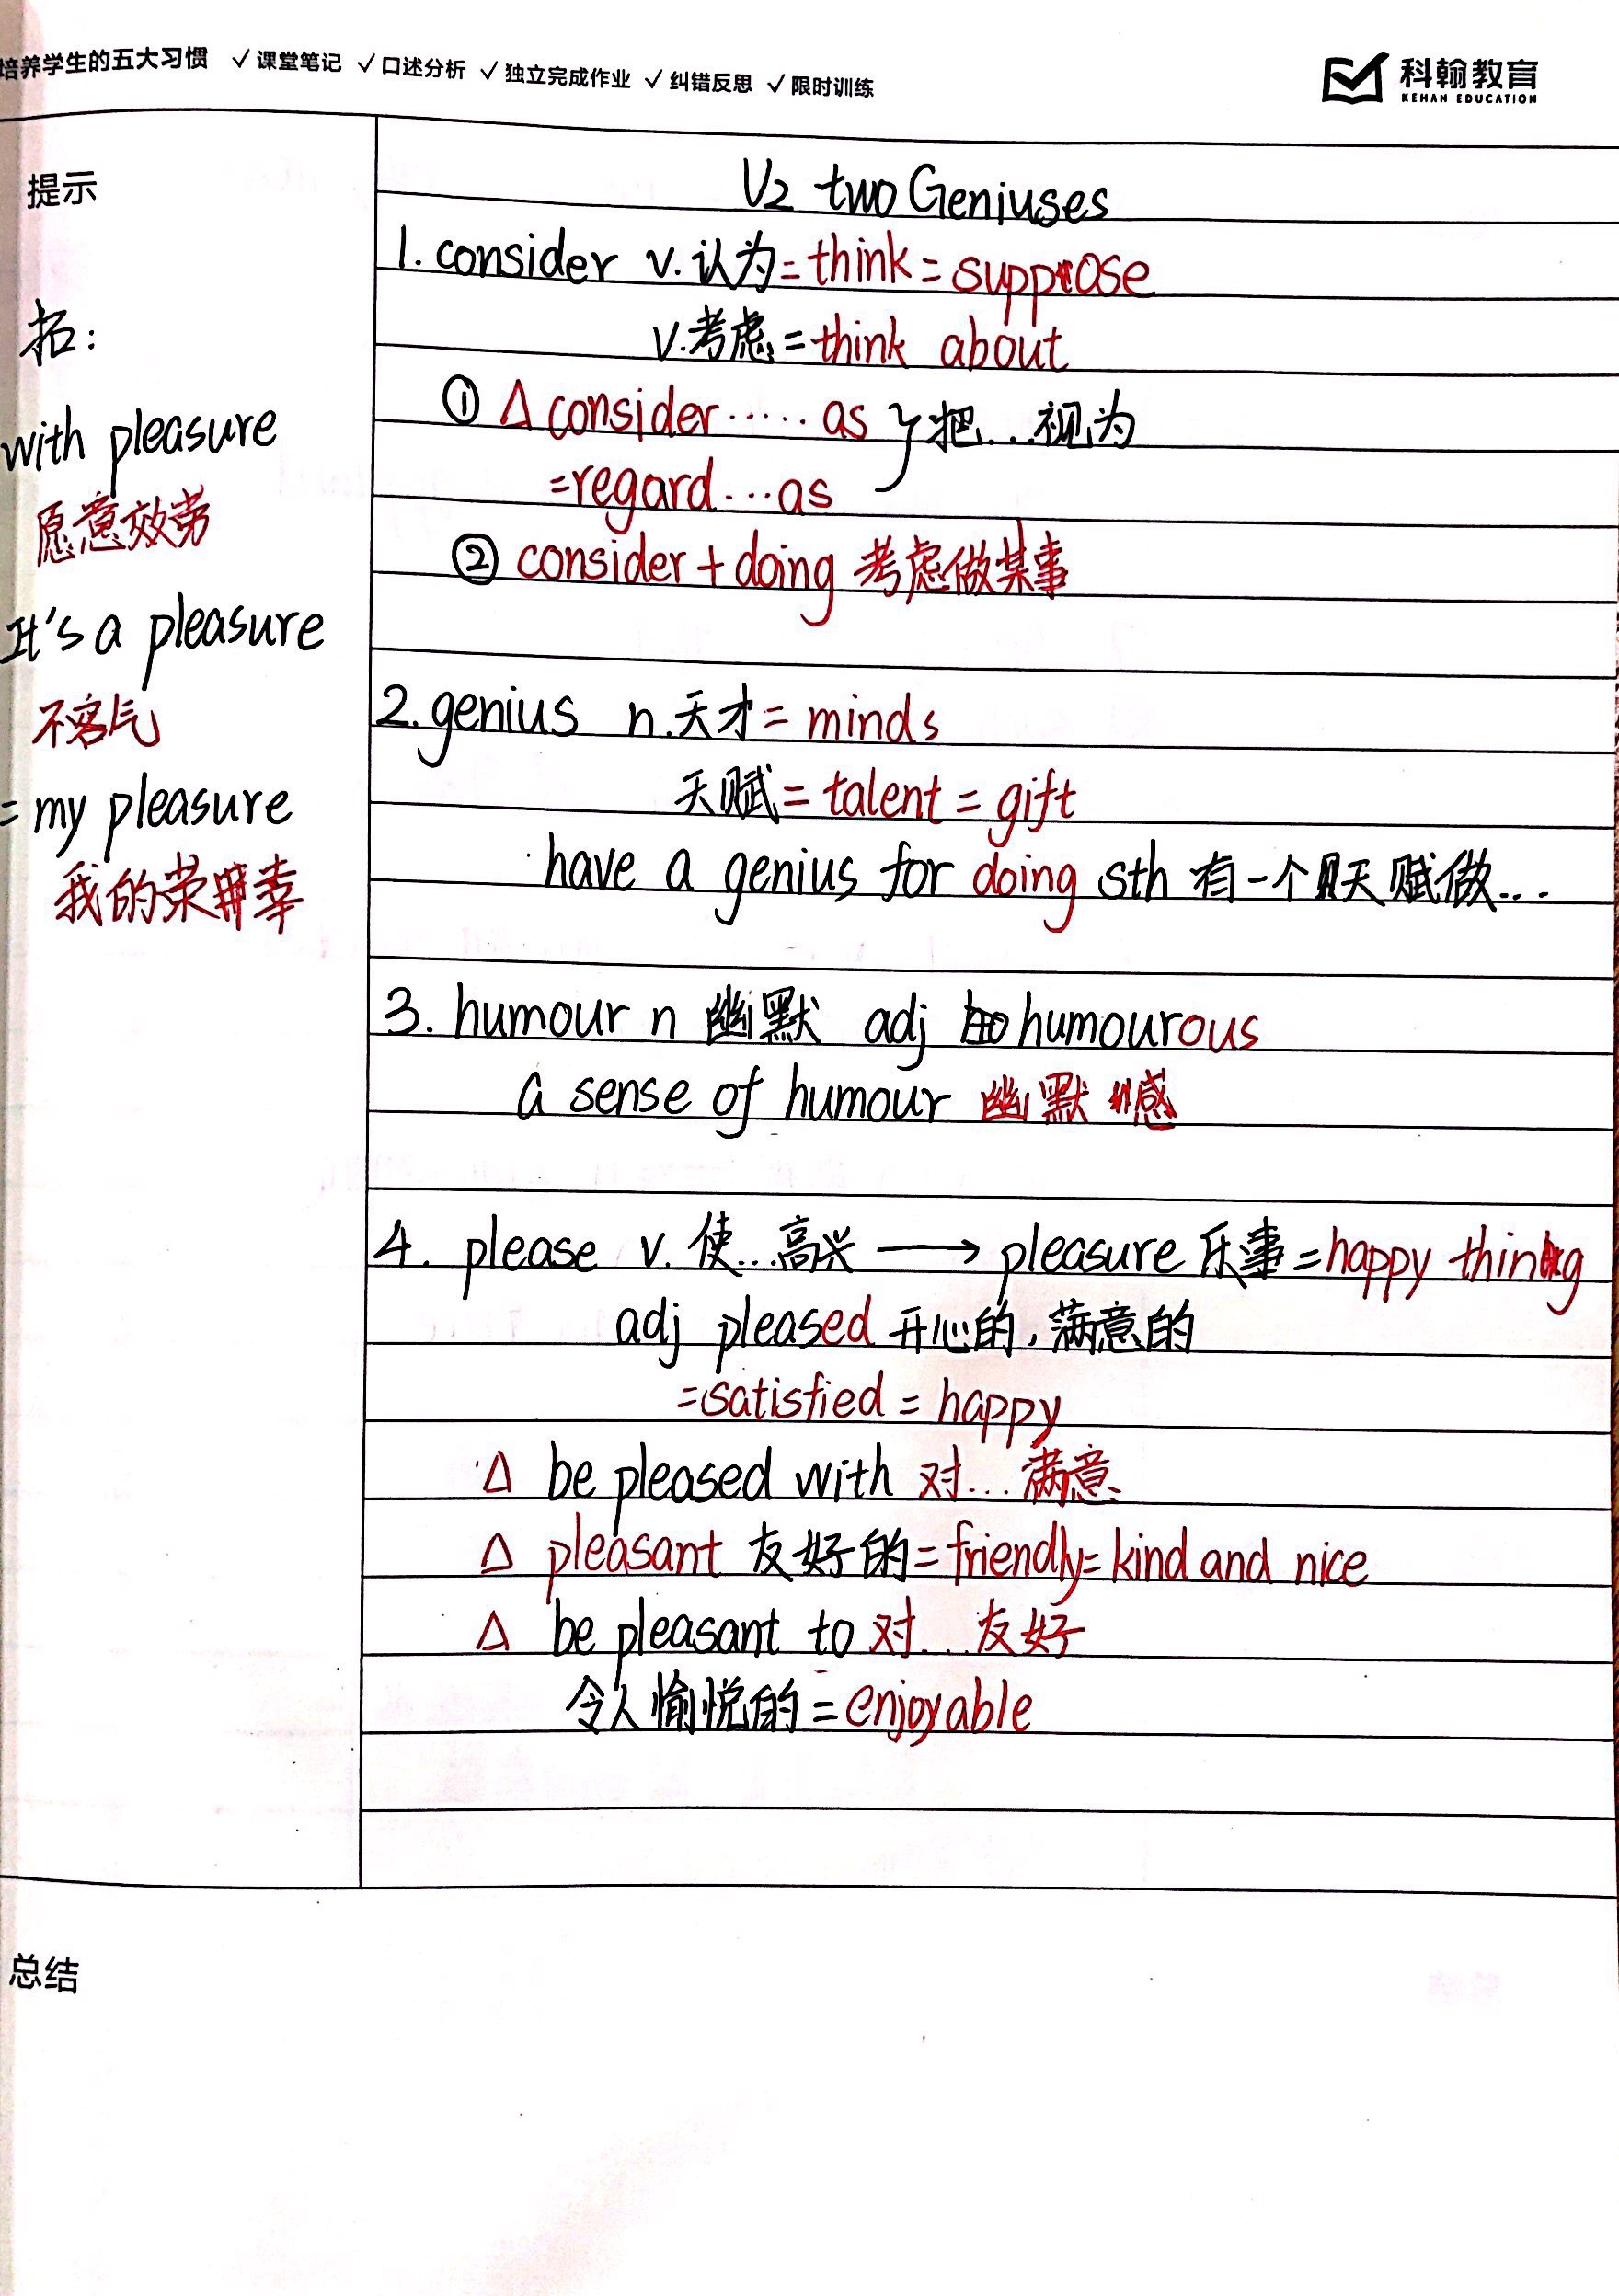 培养学生的五大习惯 ✓课堂笔记 ✓口述分析 ✓独立完成作业 ✓纠错反思 ✓限时训练
科翰教育
KEHAN EDUCATION
提示
拓:
with pleasure
愿意效劳
It's a pleasure
不客气
= my pleasure
我的荣幸
U2 two Geniuses
1. consider v. 认为 = think = suppose
v. 考虑 = think about
① △ consider ······ as } 把...视为
= regard ... as
② consider + doing 考虑做某事
2. genius n. 天才 = minds
天赋 = talent = gift
have a genius for doing sth 有一个天赋做...
3. humour n 幽默 adj humourous
a sense of humour 幽默感
4. please v. 使...高兴 → pleasure 乐事 = happy thing
adj pleased 开心的, 满意的
= satisfied = happy
△ be pleased with 对...满意
△ pleasant 友好的 = friendly = kind and nice
△ be pleasant to 对...友好
令人愉悦的 = enjoyable
总结